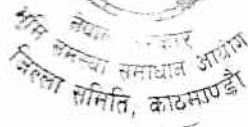 नेपाल सरकार
भूमि समस्या समाधान आयोग
जिल्ला समिति, काठमाण्डौ